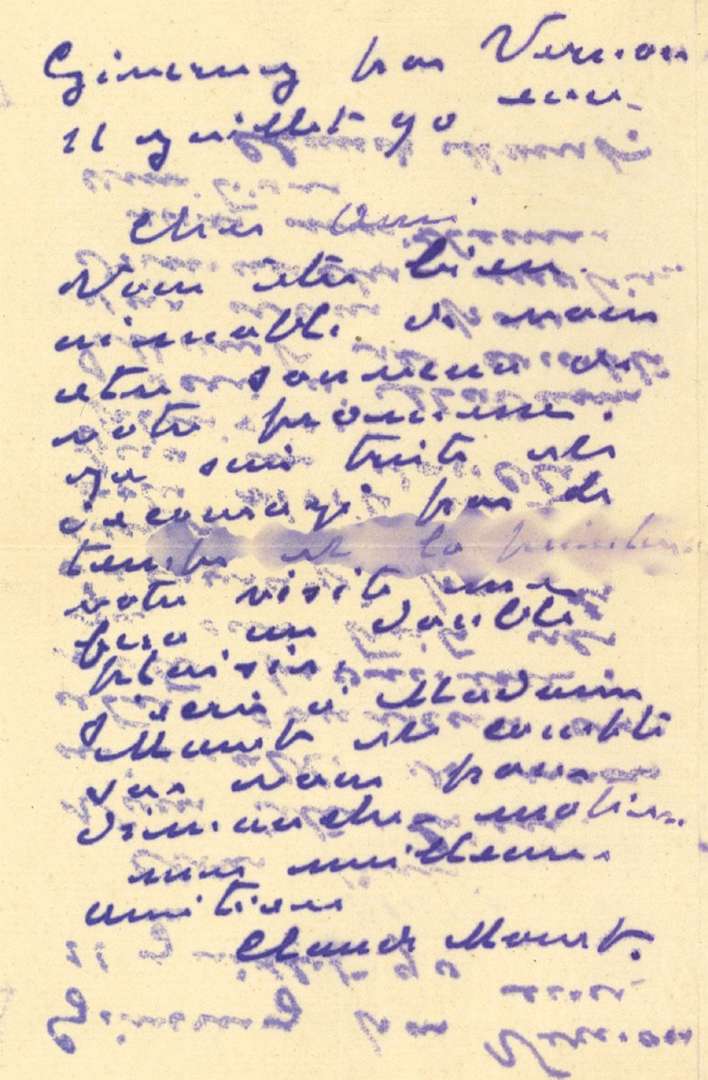 Giverny par Vernon
Eure
11 juillet 90
Cher Ami
Vous êtes bien
aimable de vous
être souvenu de
votre promesse.
Je suis triste et
découragé par le
temps et la peinture
votre visite me
fera un double
plaisir.
J'écris à Madame
Manet et compte
sur vous pour
dimanche matin.
mes meilleures
amitiés
Claude Monet.